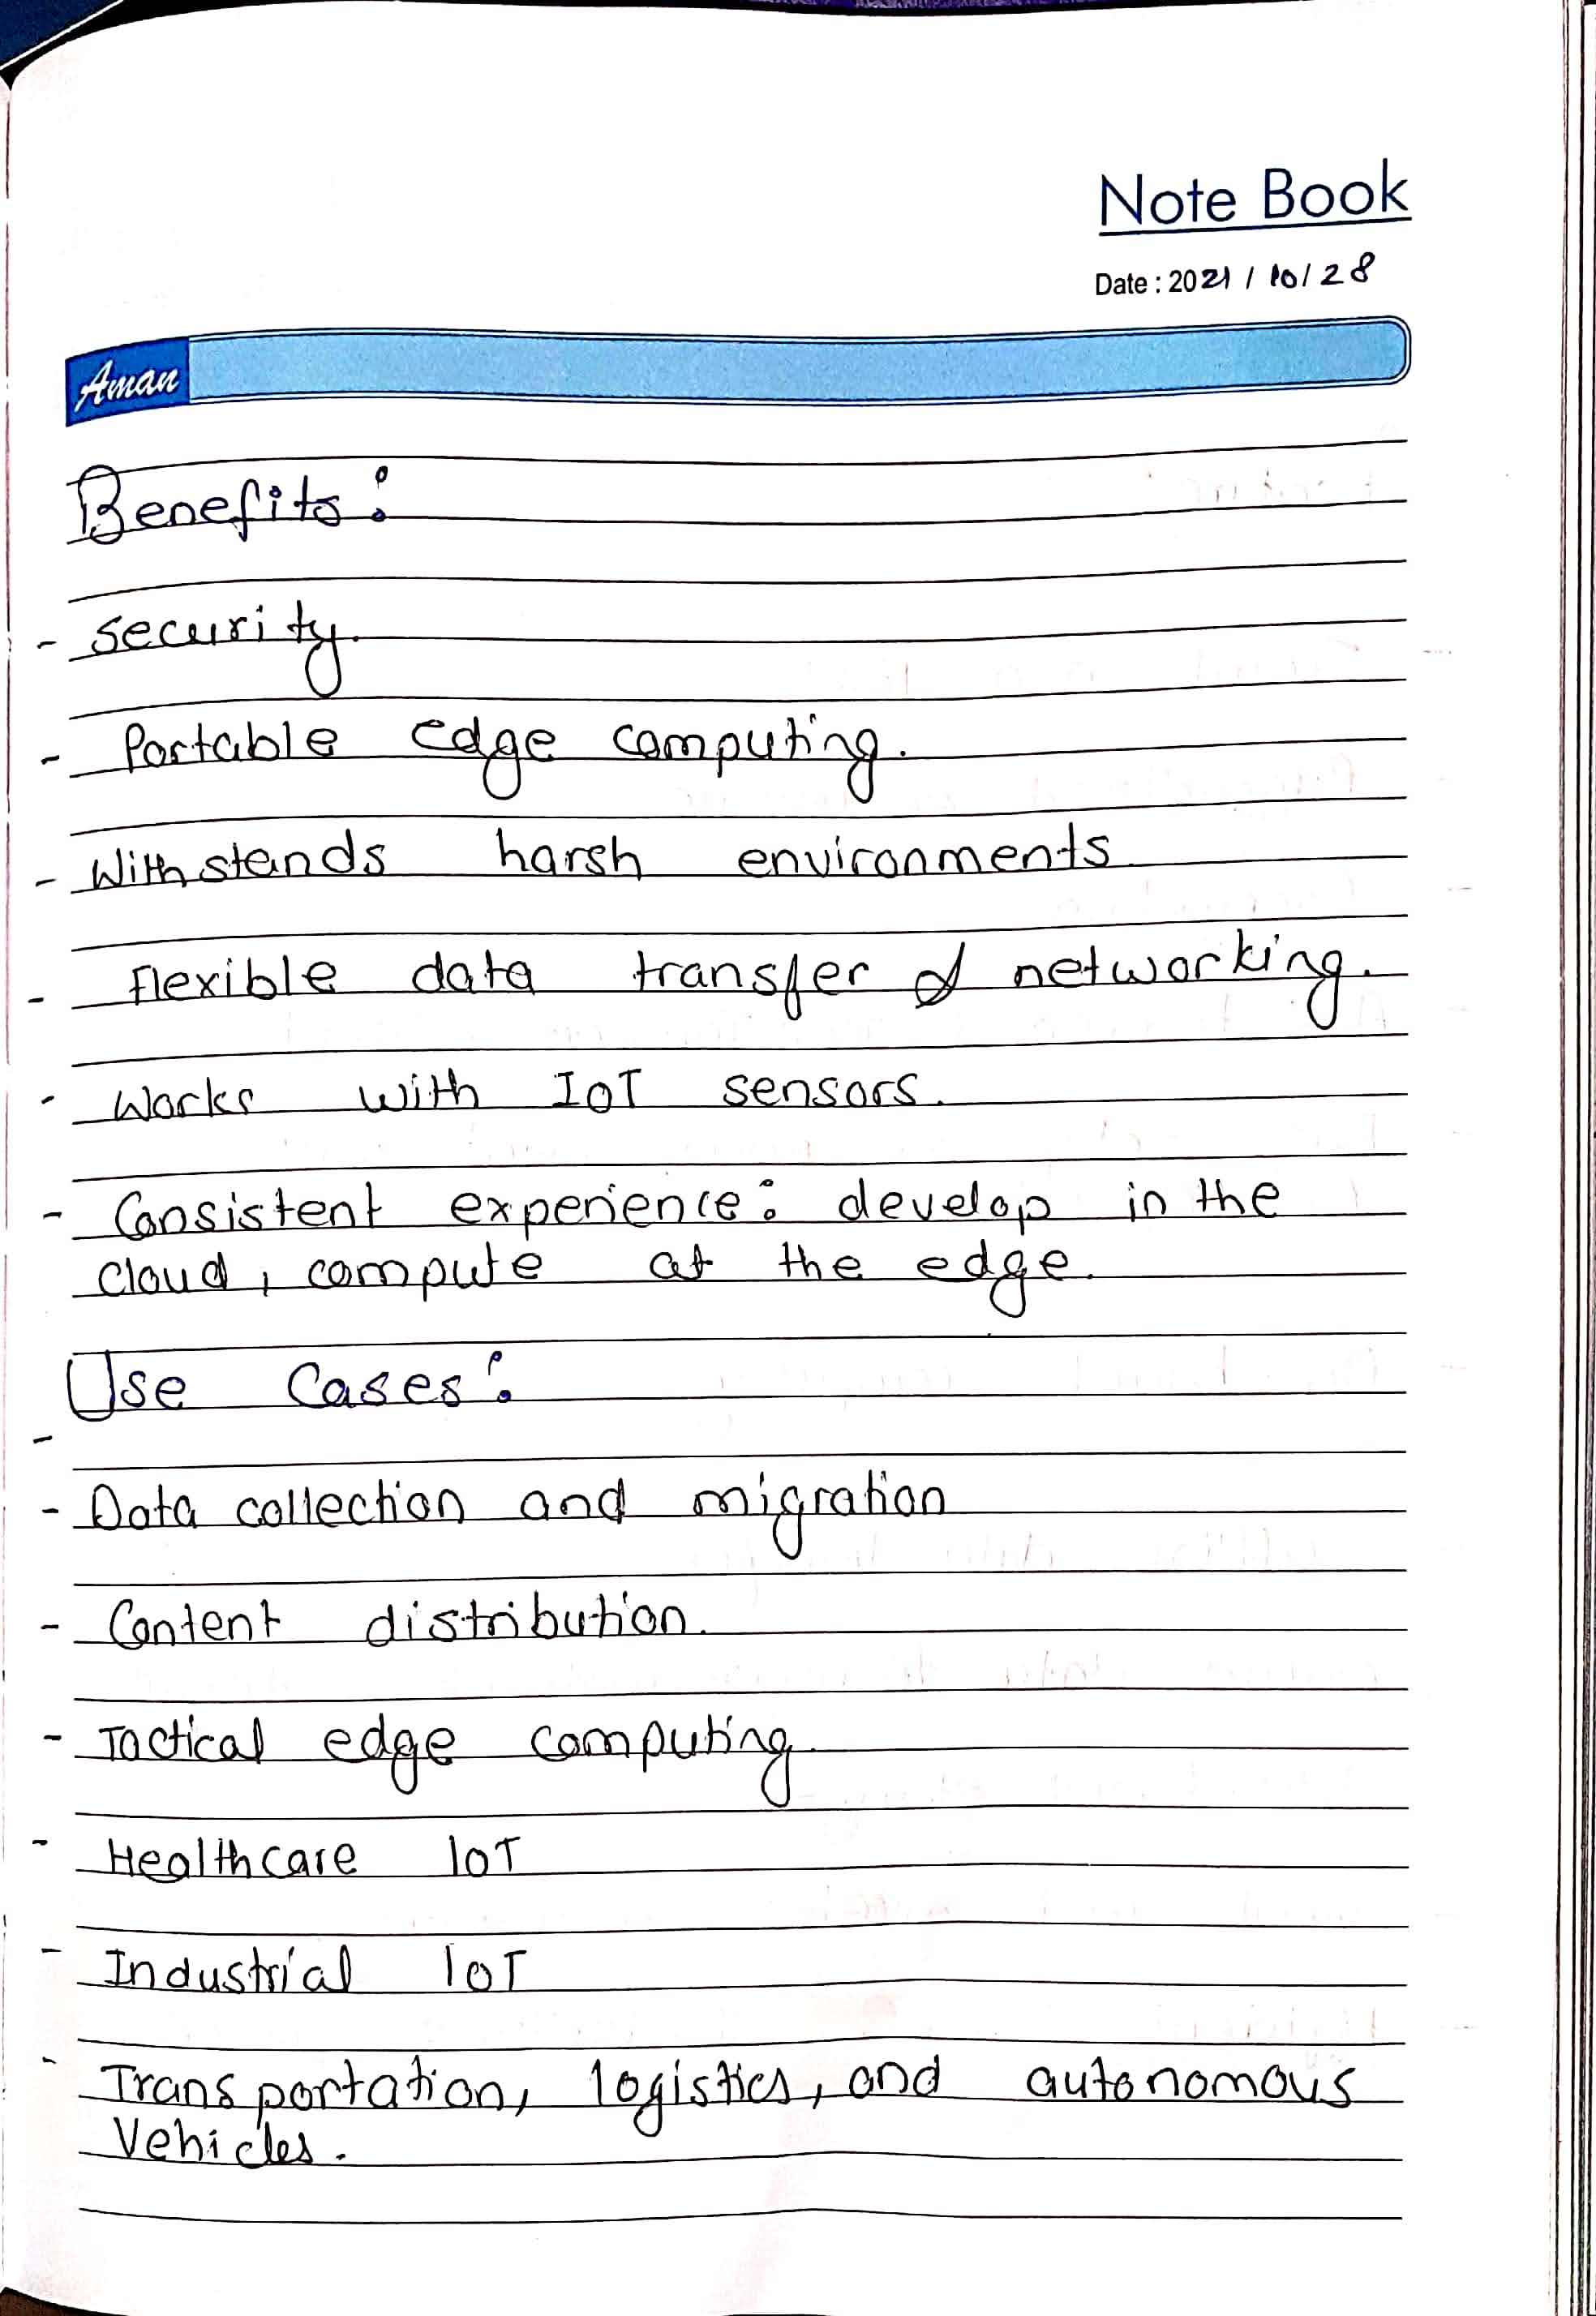 Note Book
Date : 2021 / 10/28
Aman
Benefits:
- security.
- Portable edge computing.
- Withstands harsh environments
- Flexible data transfer & networking.
- Works with IoT sensors.
- Consistent experience: develop in the
cloud, compute at the edge.
Use Cases:
-
- Data collection and migration
- Content distribution.
- Tactical edge computing.
- Healthcare IoT
- Industrial IoT
- Transportation, logistics, and autonomous
Vehicles.